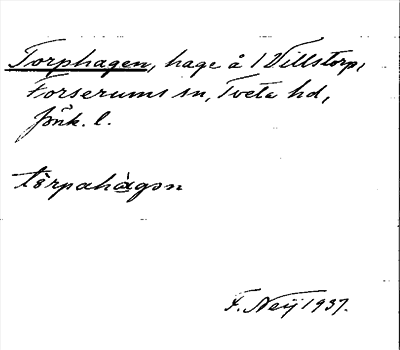 Torphagen, hage å 1 Villstorp,
Forserums sn, Tveta hd,
Jönk. l.
tòrpahàgən
F. Neij 1937.